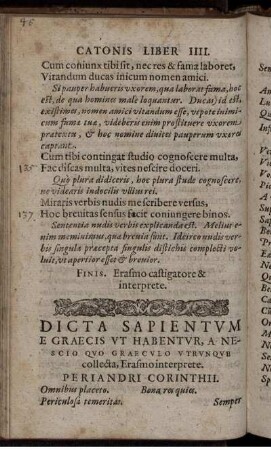 CATONIS LIBER IIII.
Cum coniunx tibi sit, nec res & fama laboret,
Vitandum ducas inicum nomen amici.
Si pauper habueris vxorem, qua laborat fama, hoc
est, de qua homines male loquantur. Ducas) id est,
existimes, nomen amici vitandum esse, vtpote inimi-
cum famæ tuæ, videberis enim prostituere vxorem
pratextu, & hoc nomine diuites pauperum vxores
captant.
Cum tibi contingat studio cognoscere multa,
Fac discas multa, vites nescire doceri.
Quò plura didiceris, hoc plura stude cognoscere,
ne videaris indocilis vllius rei.
Miraris verbis nudis me scribere versus,
Hoc breuitas sensus facit coniungere binos.
Sententia nudis verbis explicanda est. Melius e-
nim meminimus, quæ breuia sunt. Idcirco nudis ver-
bis singula præcepta singulis distichis complecti vo-
luit, vt apertior esset & breuior.
FINIS. Erasmo castigatore &
interprete.
DICTA SAPIENTVM
E GRAECIS VT HABENTVR, A NE-
SCIO QVO GRAECVLO VTRVNQVE
collecta, Erasmo interprete.
PERIANDRI CORINTHII.
Omnibus placeto. Bona res quies.
Periculosa temeritas. Semper